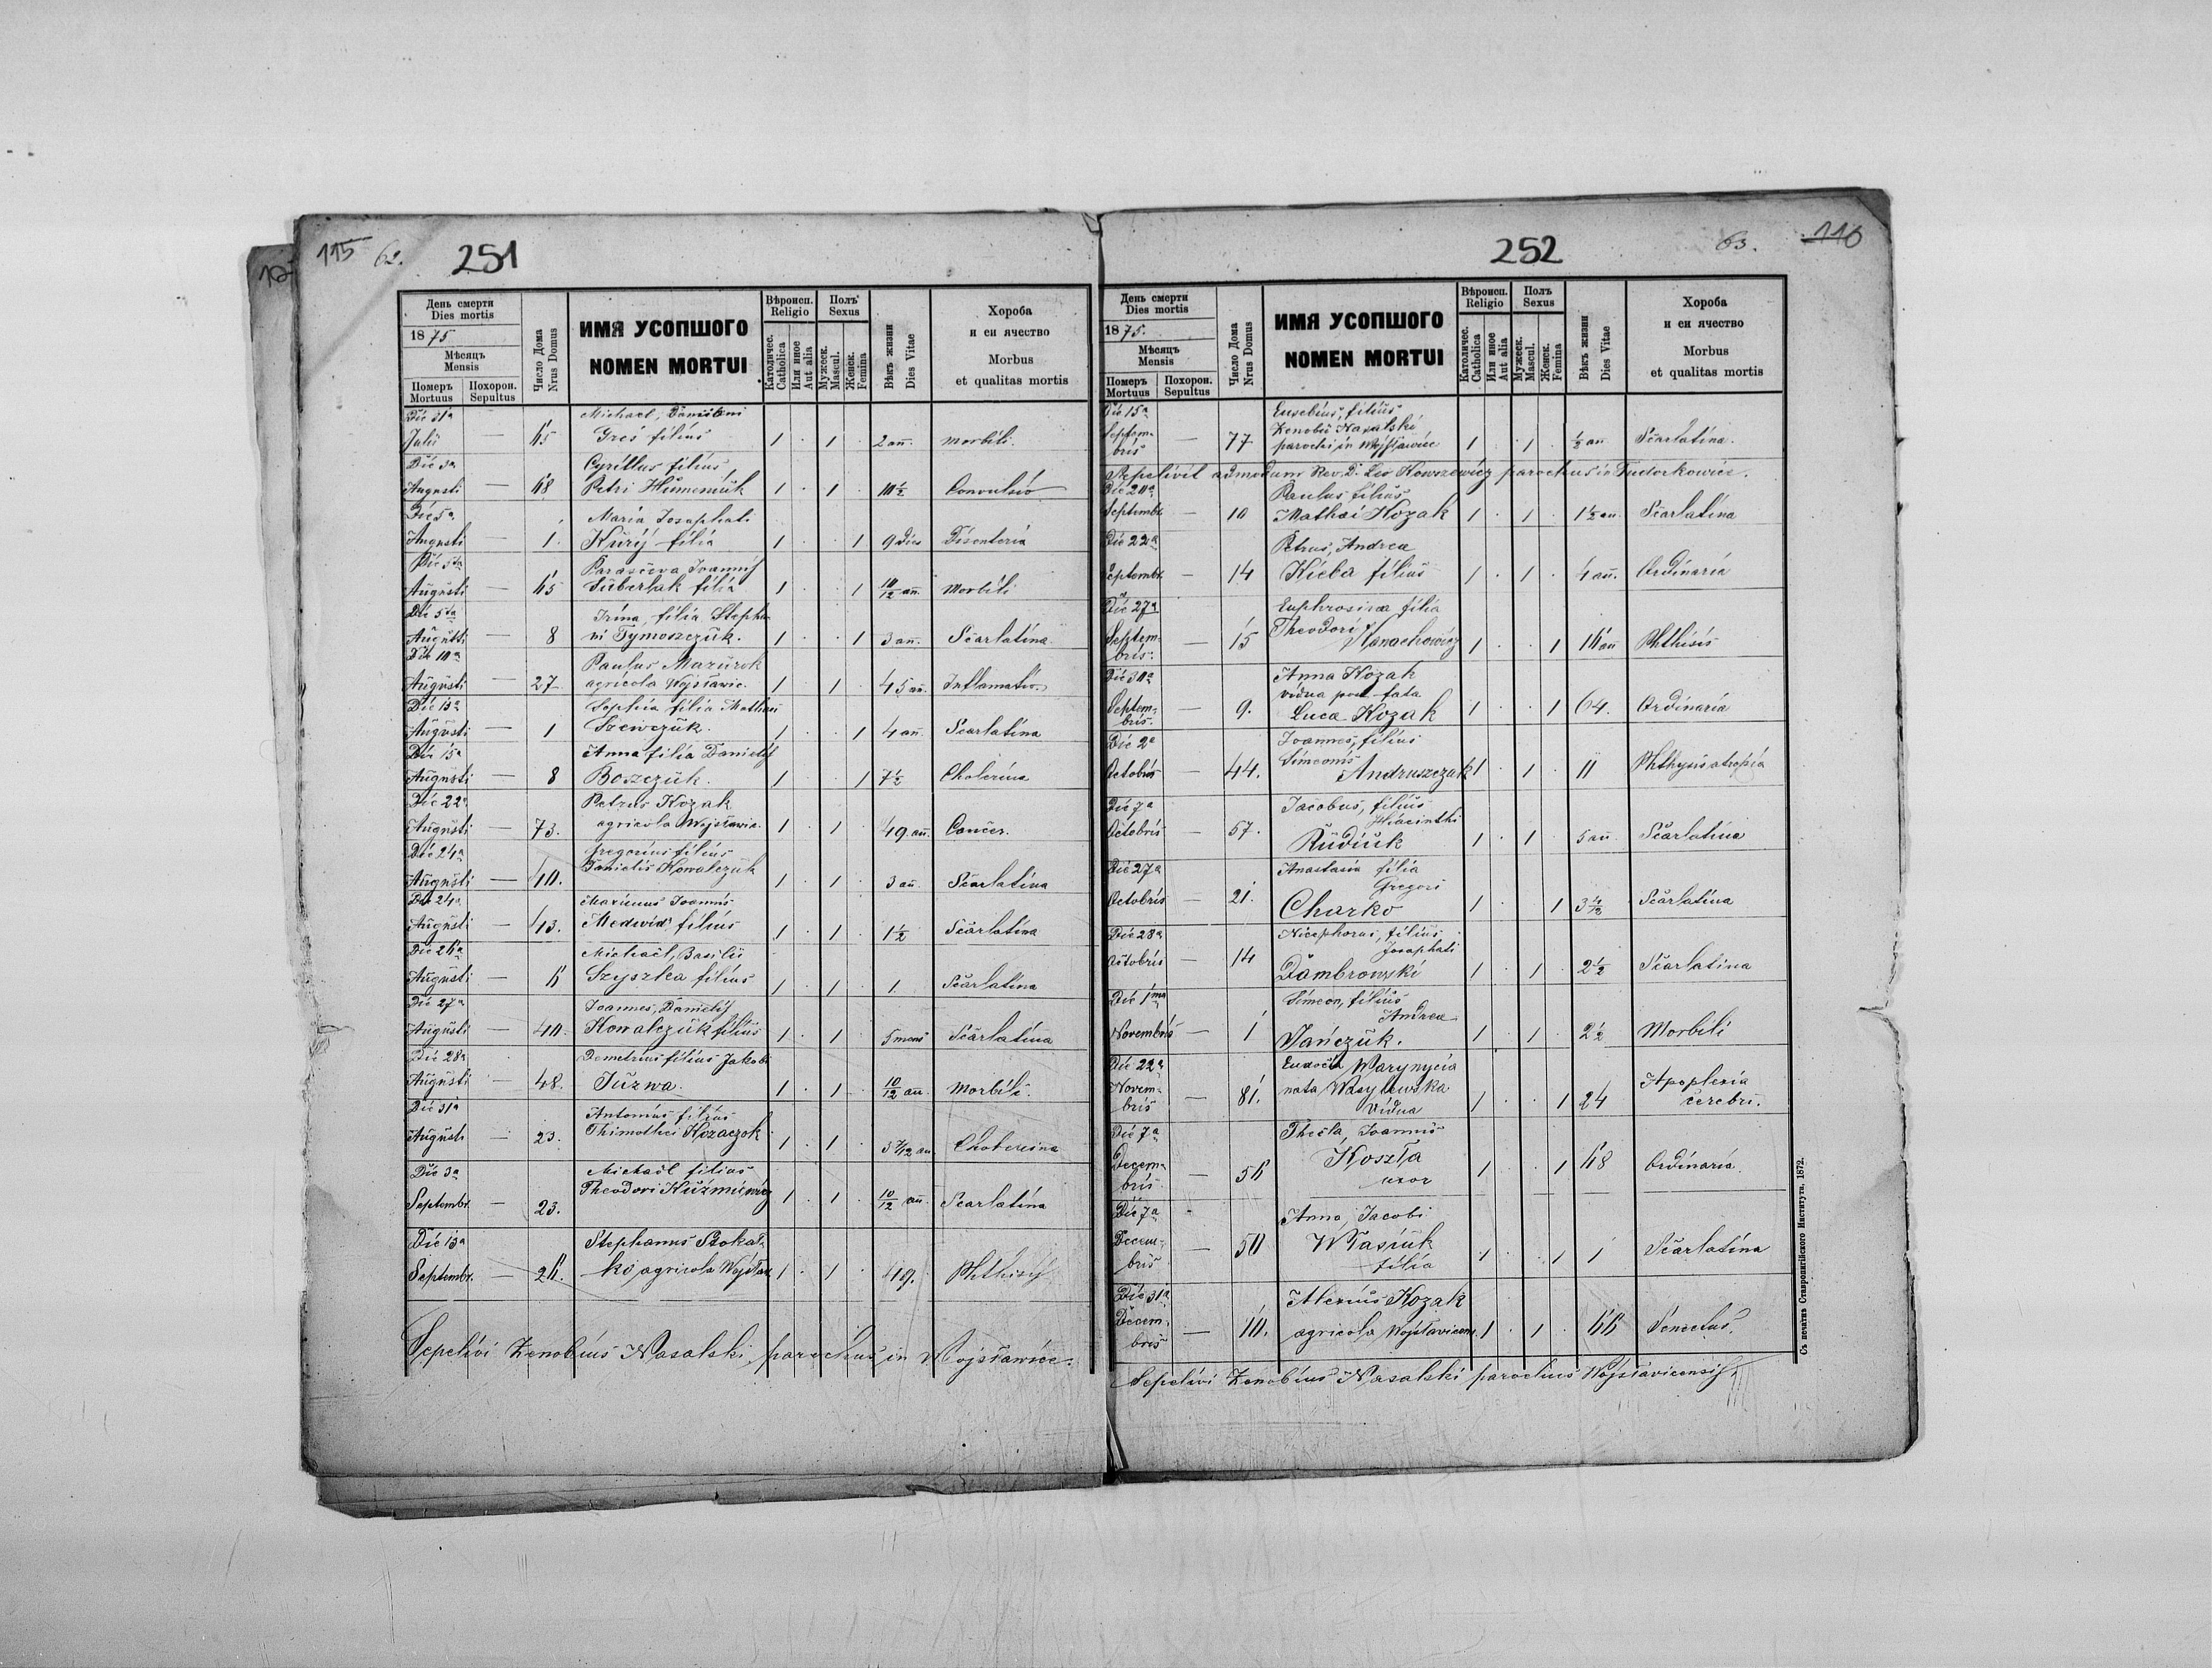 115 62. 251
День смерти
Dies mortis
1875
Мѣсяцъ
Mensis
Померъ
Mortuus
Похорон.
Sepultus
Число Дома
Nrus Domus
ИМЯ УСОПШОГО
NOMEN MORTUI
Вѣроисп.
Religio
Католичес.
Catholica
Или иное
Aut alia
Полъ
Sexus
Мужеск.
Mascul.
Женск.
Femina
Вѣкъ жизни
Dies Vitae
Хороба
и еи ячество
Morbus
et qualitas mortis
Die 31a Michael, Danieleni
Julii — 65 Greś filius 1 . 1 2 an. morbili.
Die 3a Cyrillus filius
Augusti — 68 Petri Humeniuk 1 . 1 . 10 1/2 Convulsio
Die 5a Maria Josaphati
Augusti — 1. Kuryj filia 1 . . 1 9 dies Disenteria
Die 5ta Parasceva Joannis
Augusti — 65 Suberlak filia 1 . . 1 10/12 an. Morbili
Die 5ta Irina, filia Stepha-
Augusti — 8 ni Tymoszczuk. 1 . . 1 3 an. Scarlatina
Die 10a Paulus Mazurok
Augusti — 27 agricola Wojsławic. 1 . 1 45 an. Inflamatio
Die 13a Sophia filia Mathaei
Augusti — 1 Szewczuk. 1 . . 1 4 an. Scarlatina
Die 15a Anna filia Danielis
Augusti — 8 Boszczuk. 1 . . 1 7 1/2 Cholerina
Die 22a Petrus Kozak
Augusti — 73. agricola Wojsławic. 1 . 1 . 49 an. Cancer.
Die 24a Gregorius filius
Augusti — 40. Danielis Kowalczuk 1 . 1 . 3 an. Scarlatina
Die 24a Maximus Joannis
Augusti — 43. Medwid filius 1 . 1 . 1 1/2 Scarlatina
Die 26a Michaël, Basilii
Augusti — 6 Szyszka filius 1 . 1 . 1 Scarlatina
Die 27a Joannes, Danielis
Augusti — 40. Kowalczuk filius 1 . 1 5 mens Scarlatina
Die 28a Demetrius filius Jakobi
Augusti — 48. Juzwa. 1 . 1 . 10/12 an. Morbili.
Die 31a Antonius filius
Augusti — 23. Thimothei Kozaczok 1 . 1 . 3 7/12 an Cholerina
Die 3a Michaël filius
Septembr. — 23. Theodori Kuźmiewicz 1 . 1 . 10/12 an. Scarlatina
Die 13a Stephanus Szokal-
Septembr. — 26. ko agricola Wojsław 1 . 1 . 49. Phthisis
Sepelivi Zenobius Nasalski, parochus in Wojsławice.
252 63. 116
День смерти
Dies mortis
1875.
Мѣсяцъ
Mensis
Померъ
Mortuus
Похорон.
Sepultus
Число Дома
Nrus Domus
ИМЯ УСОПШОГО
NOMEN MORTUI
Вѣроисп.
Religio
Католичес.
Catholica
Или иное
Aut alia
Полъ
Sexus
Мужеск.
Mascul.
Женск.
Femina
Вѣкъ жизни
Dies Vitae
Хороба
и еи ячество
Morbus
et qualitas mortis
Die 15a Eusebius, filius
Septem- Zenobii Nasalski
bris — 77 parochi in Wojsławice 1 . 1 . 1/2 an Scarlatina.
Sepelivit admodum Rev. D. Leo Kowszewicz parochus in Tudorkowice.
Die 20a Paulus filius
Septembr. — 10 Mathaei Kozak 1 . 1 . 1 1/2 an. Scarlatina
Die 22a Petrus, Andrea
Septembr. — 14 Kieba filius 1 . 1 . 4 an. Ordinaria
Die 27a Euphrosina filia
Septem- — 15 Theodori Hanachowicz 1 . . 1 16 an Phthisis
bris.
Die 30a Anna Kozak
vidua post fata
Septem- — 9. Luca Kozak 1 . . 1 64. Ordinaria
bris.
Die 2a Joannes, filius
Simeonis
Octobris — 44. Andruszczak 1 . 1 . 11 Phthysis atrophia
Die 7a Jacobus, filius
Hiacinthi
Octobris — 57. Rudiuk 1 . 1 5 an Scarlatina
Die 27a Anastasia filia
Gregori
Octobris — 21. Charko 1 . . 1 3 4/12 Scarlatina
Die 28a Nicephorus, filius
Josaphati
Octobris — 14 Dambrowski 1 . 1 . 2 1/2 Scarlatina
Die 1ma Simeon, filius
Andrea
Novembris — 1 Jańczuk. 1 . 1 . 2 1/2 Morbili
Die 22a Eudocia Warynycia
Novem- nata Wasylewska
bris — 81. vidua 1 . . 1 24 Apoplexia
cerebri.
Die 7a Thecla, Joannis
Decem- Koszla
bris — 56 uxor 1 . . 1 68 Ordinaria.
Die 7a Anna, Jacobi
Decem- — 50 Własiuk
bris filia 1 . . 1 1 Scarlatina
Die 31a Alexius Kozak
Decem- — 10. agricola Wojsławicens. 1 . 1 . 66 Senectus.
bris
Sepelivi Zenobius Nasalski parochus Wojsławicensis
Съ печатнѣ Ставропигійского Института, 1872.